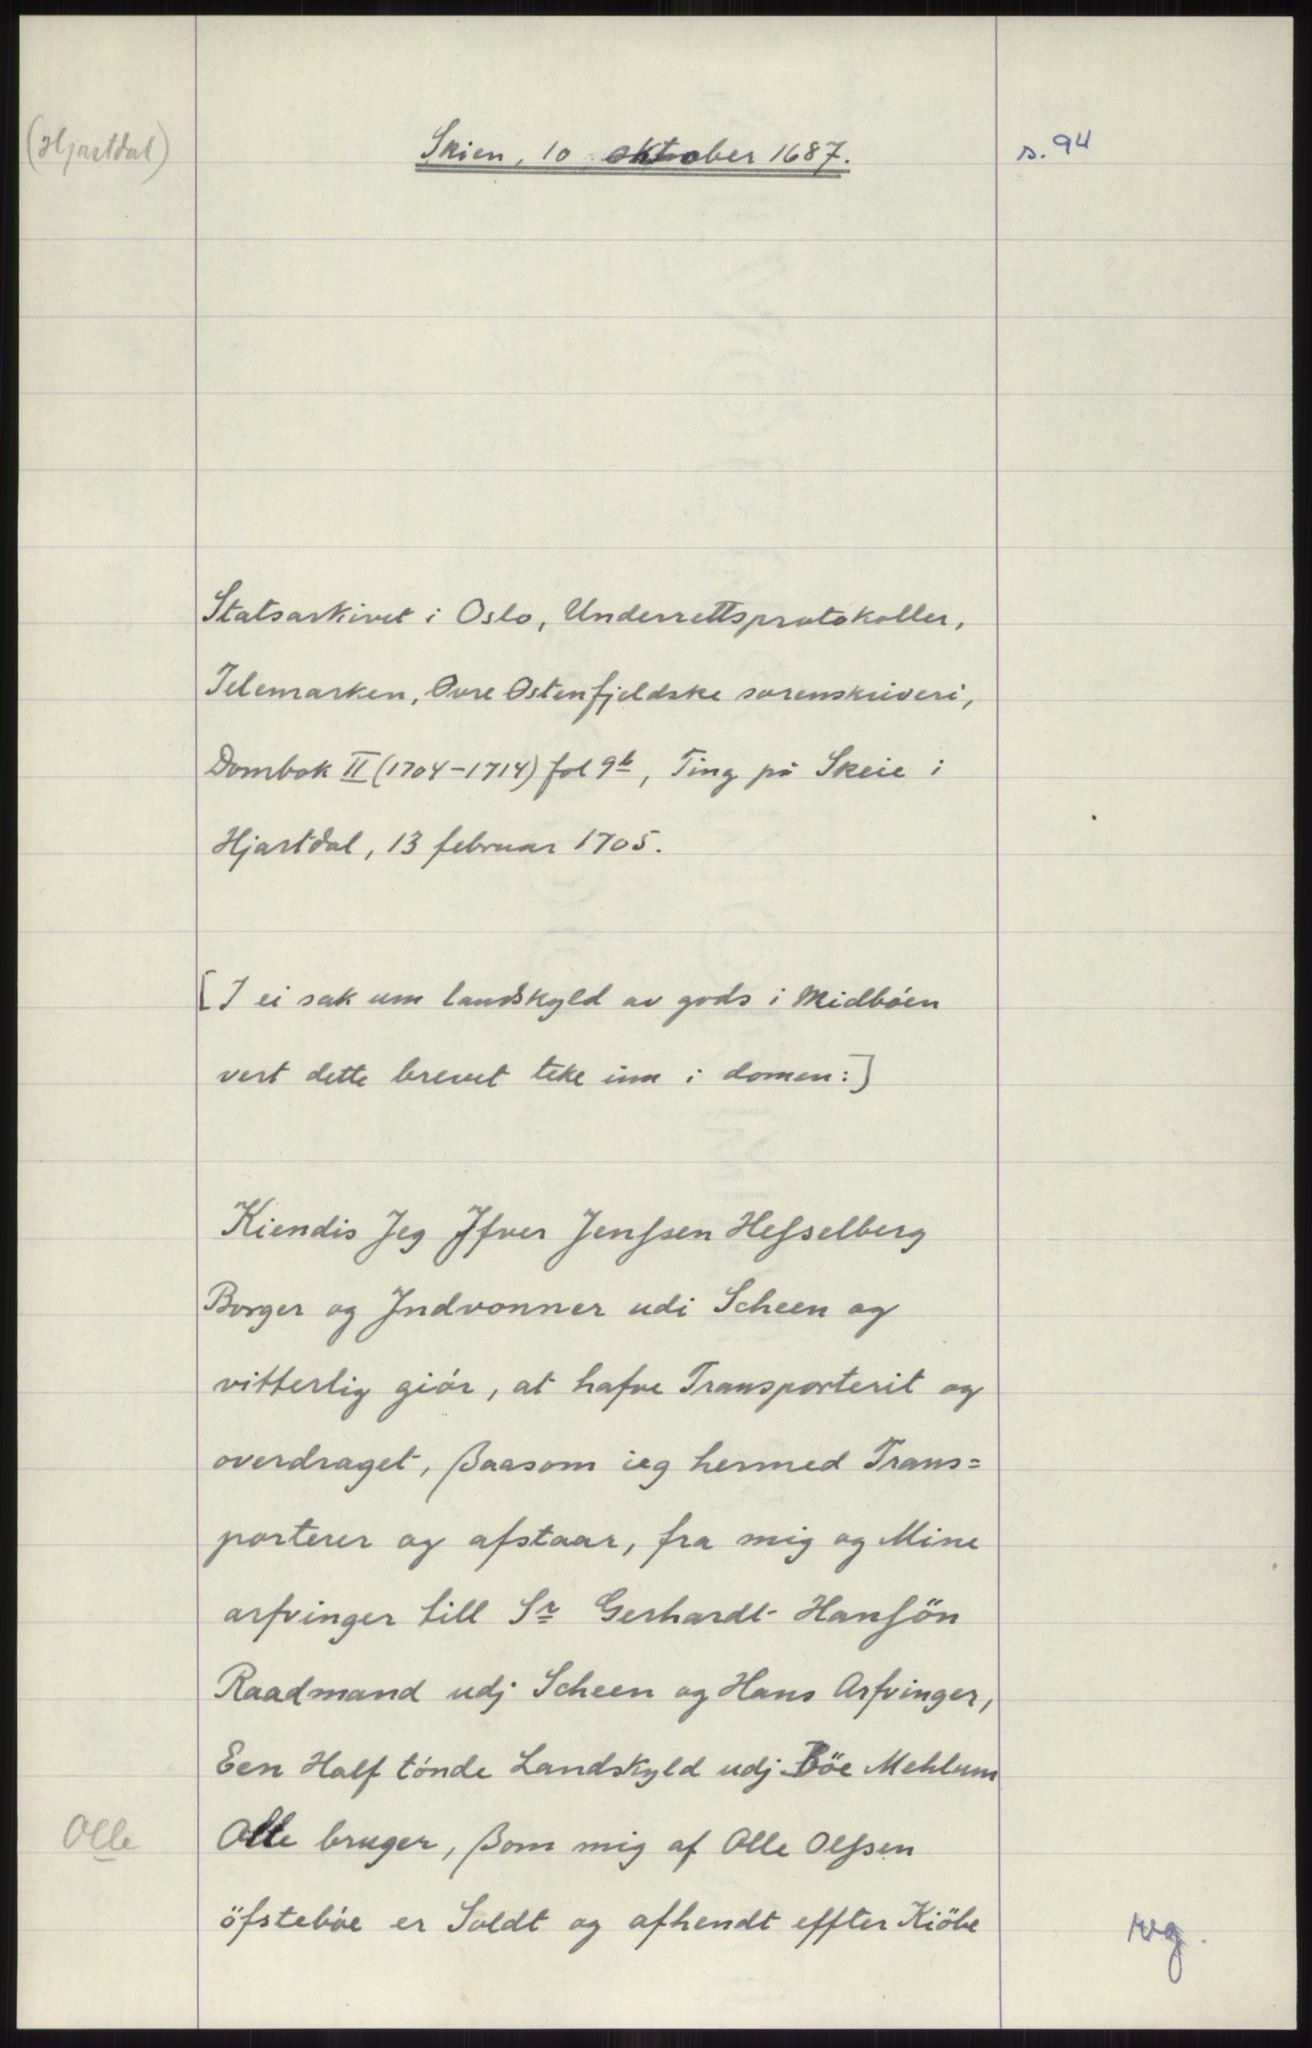 (Hjartdal)
Skien, 10 oktober 1687.
s. 94
Statsarkivet i Oslo, Underrettsprotokoller,
Telemarken, Øvre Østenfjeldske sorenskriveri,
Dombok II (1704-1714) fol 9b, Ting på Skeie i
Hjartdal, 13 februar 1705.
[I ei sak um landskyld av gods i Midböen
vert dette brevet teke inn i domen:]
Kiendis Jeg Jfver Jenſsen Heſselberg
Borger og Jndvonner udi Scheen og
vitterlig giör, at hafve Transporterit og
overdraget, ßaasom ieg hermed Trans=
porterer og afstaar, fra mig og Mine
arfvinger till Sr Gerhardt Hanſön
Raadmand udj Scheen og Hans Arfvinger,
Een Half tönde Landskyld udj Böe Mehlum
Olle
Olle bruger, ßom mig af Olle Olſsen
öfsteböe er Soldt og afhendt effter Kiöbe